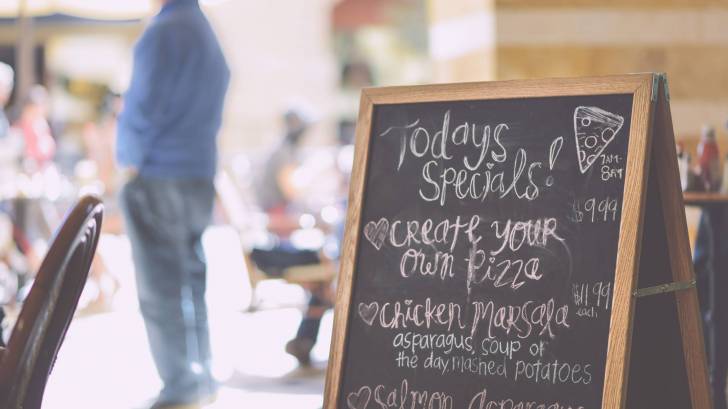 Todays
Specials!
7AM-
8PM
$9.99
create your
own pizza
$11.99
each
chicken Marsala
asparagus, soup of
the day, mashed potatoes
Salmon Asparagus